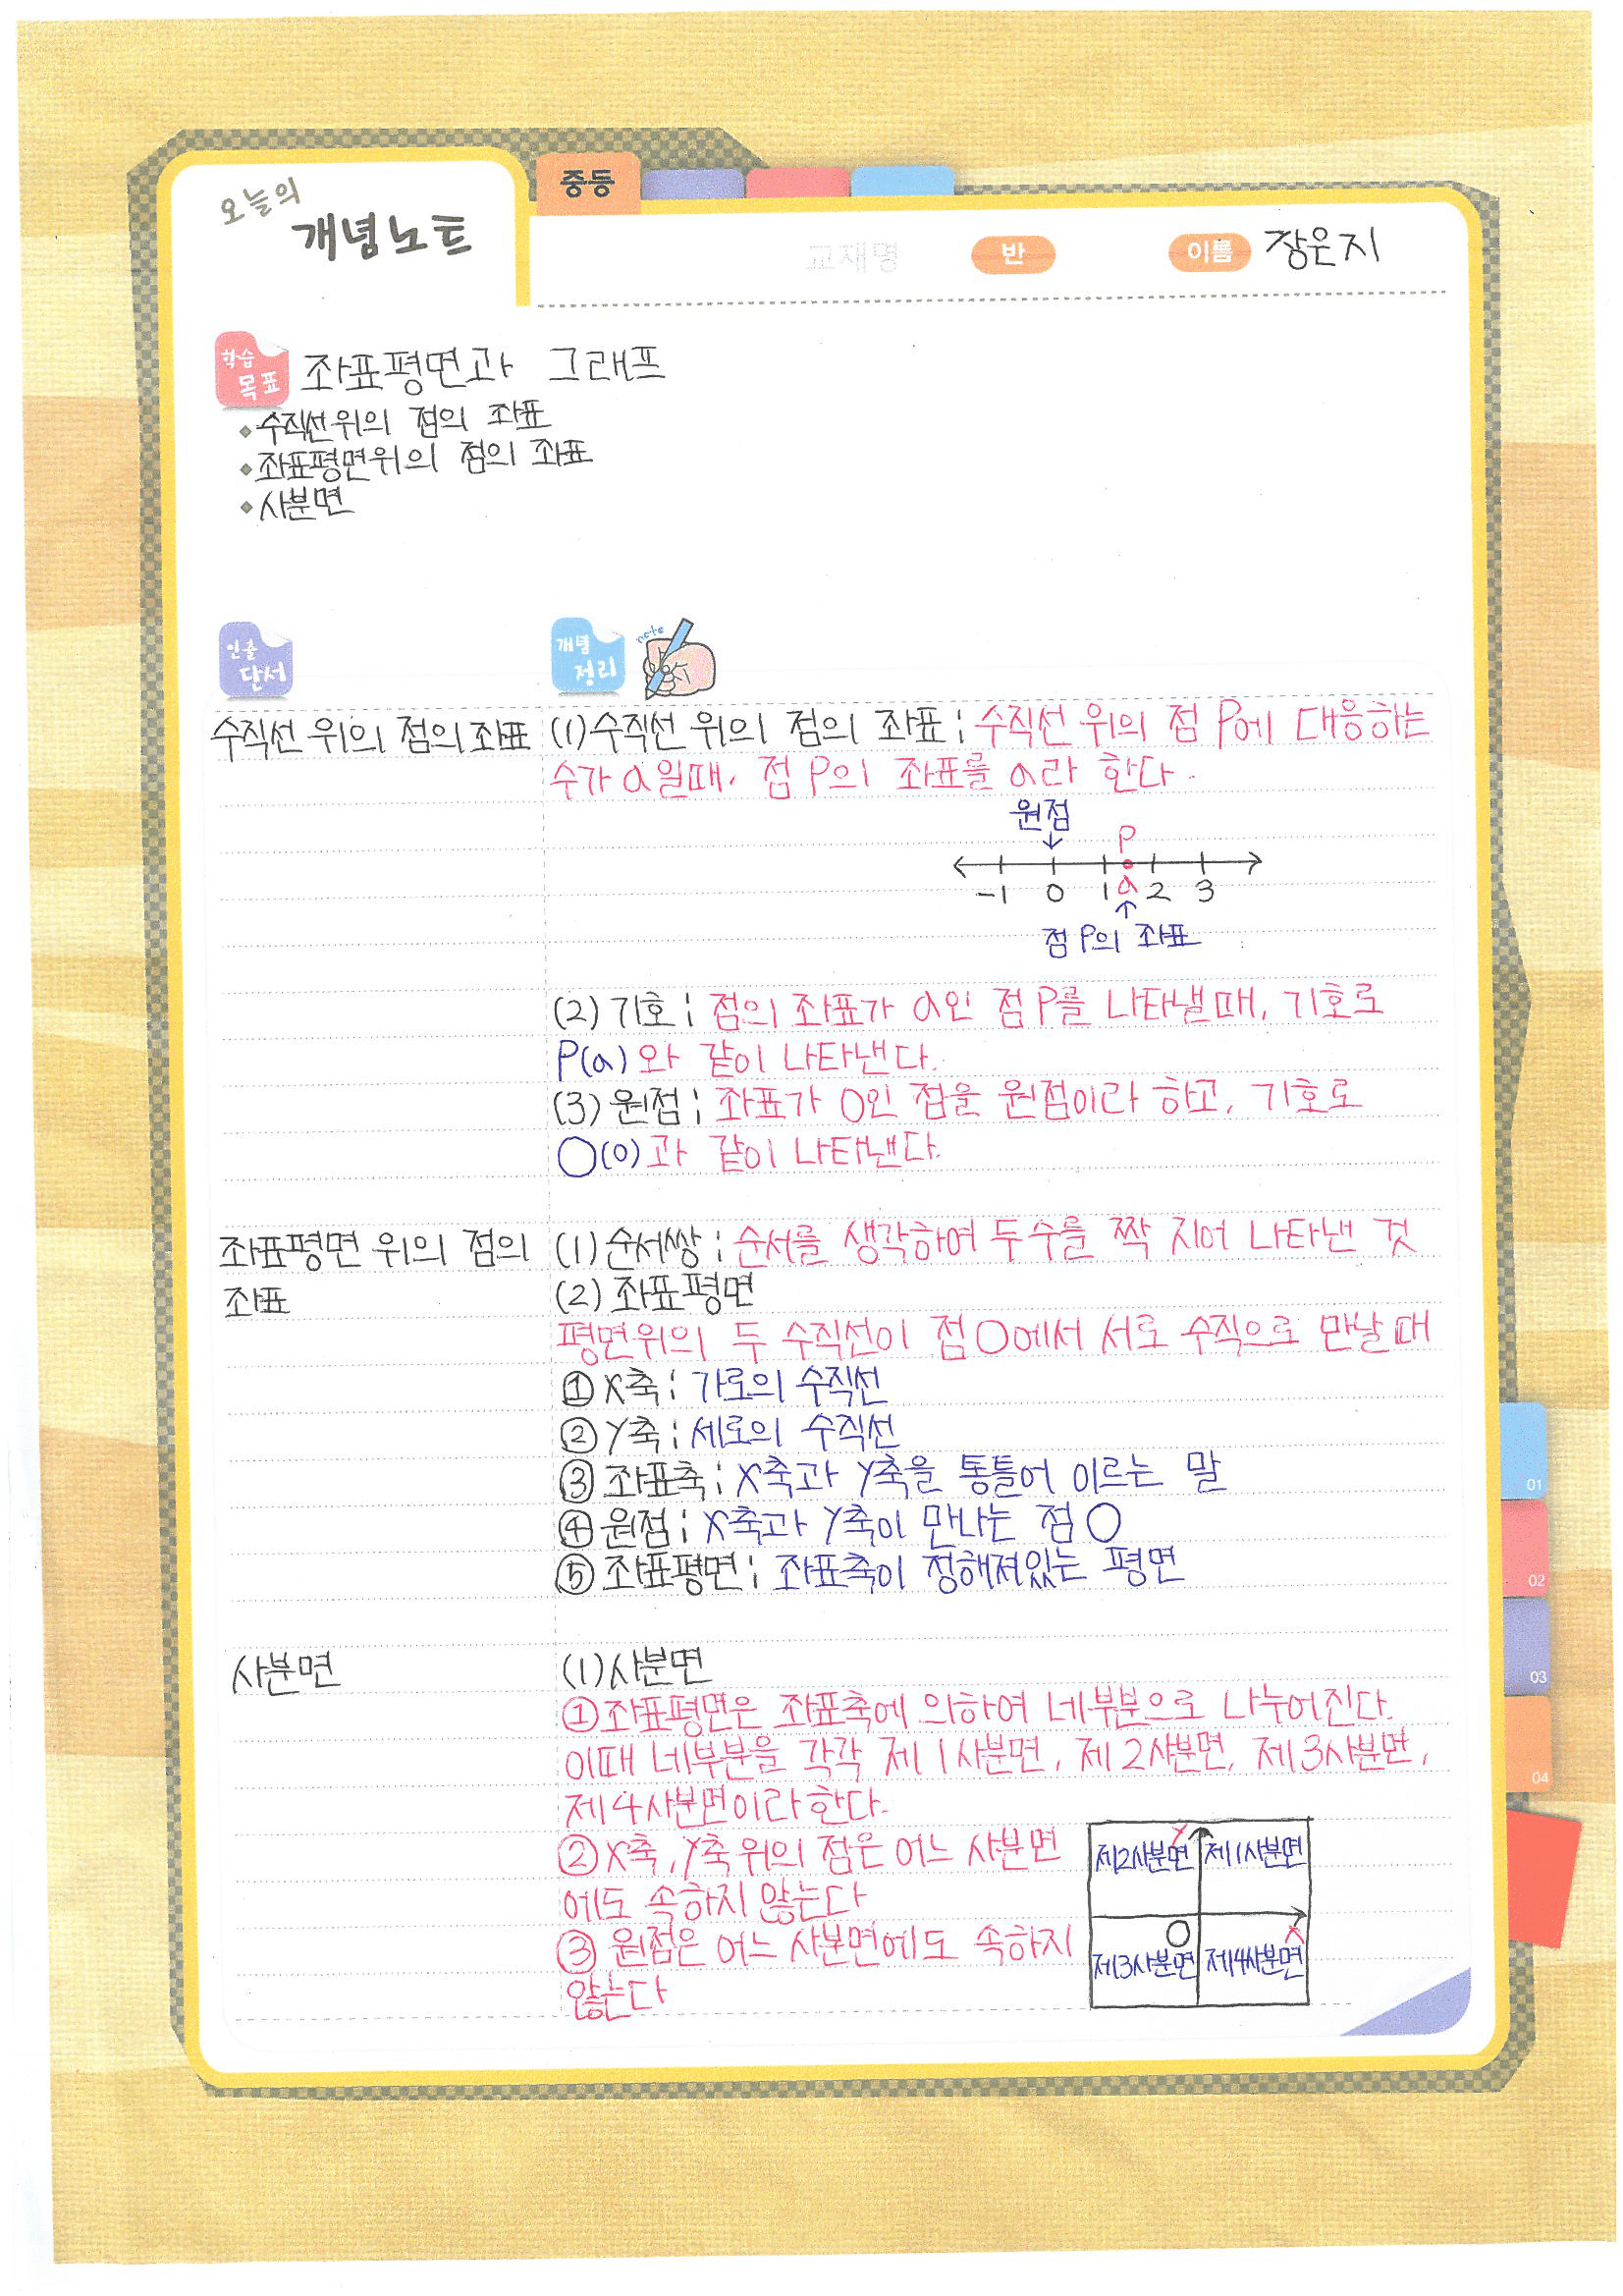 오늘의
개념노트
중등
교재명
반
이름 장은지
학습
목표
좌표평면과 그래프
수직선위의 점의 좌표
좌표평면위의 점의 좌표
사분면
인출
단서
개념
정리
note
수직선 위의 점의 좌표
(1)수직선 위의 점의 좌표 : 수직선 위의 점 P에 대응하는
수가 a일때, 점 P의 좌표를 a라 한다.
원점
↓
P
-1 0 1 a 2 3
↑
점 P의 좌표
(2) 기호 : 점의 좌표가 a인 점 P를 나타낼때, 기호로
P(a)와 같이 나타낸다.
(3) 원점 : 좌표가 0인 점을 원점이라 하고, 기호로
O(0)과 같이 나타낸다.
좌표평면 위의 점의
좌표
(1) 순서쌍 : 순서를 생각하여 두 수를 짝 지어 나타낸 것
(2) 좌표평면
평면위의 두 수직선이 점 O에서 서로 수직으로 만날 때
① X축 : 가로의 수직선
② Y축 : 세로의 수직선
③ 좌표축 : X축과 Y축을 통틀어 이르는 말
④ 원점 : X축과 Y축이 만나는 점 O
⑤ 좌표평면 : 좌표축이 정해져있는 평면
사분면
(1)사분면
①좌표평면은 좌표축에 의하여 네부분으로 나누어진다.
이때 네부분을 각각 제1사분면, 제2사분면, 제3사분면,
제4사분면이라한다.
②X축, Y축 위의 점은 어느 사분면
에도 속하지 않는다
③ 원점은 어느 사분면에도 속하지
않는다
Y
제2사분면 제1사분면
O X
제3사분면 제4사분면
01
02
03
04